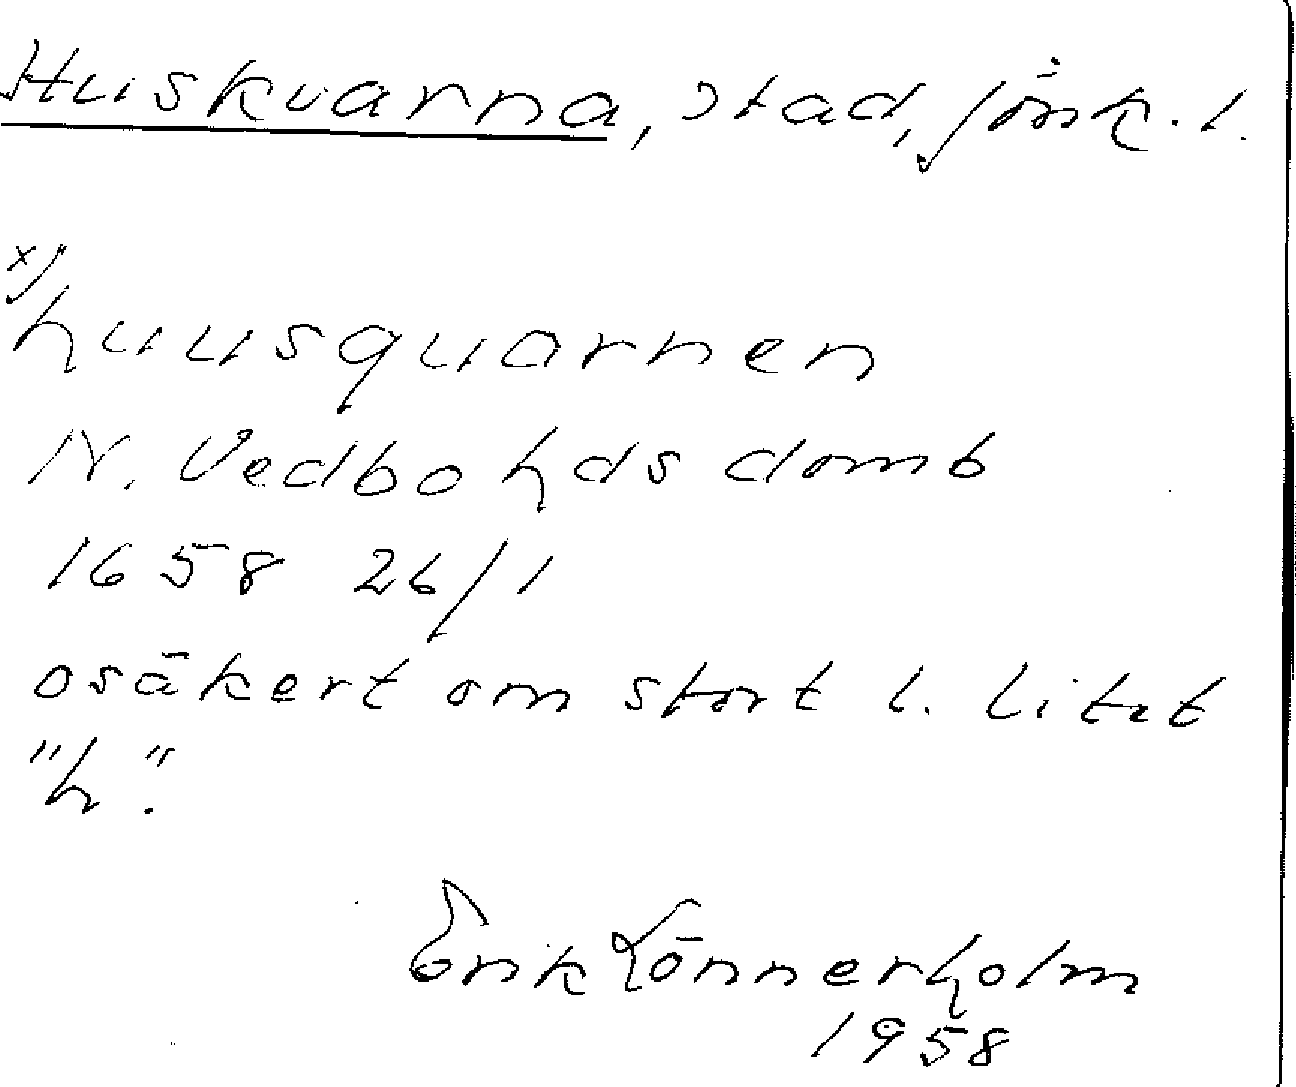 Huskvarna, stad, Jönk. l.
x)
huusquarnen
N. Vedbo hds domb
1658 26/1
osäkert om stort l. litet
"h".
Erik Lönnerholm
1958